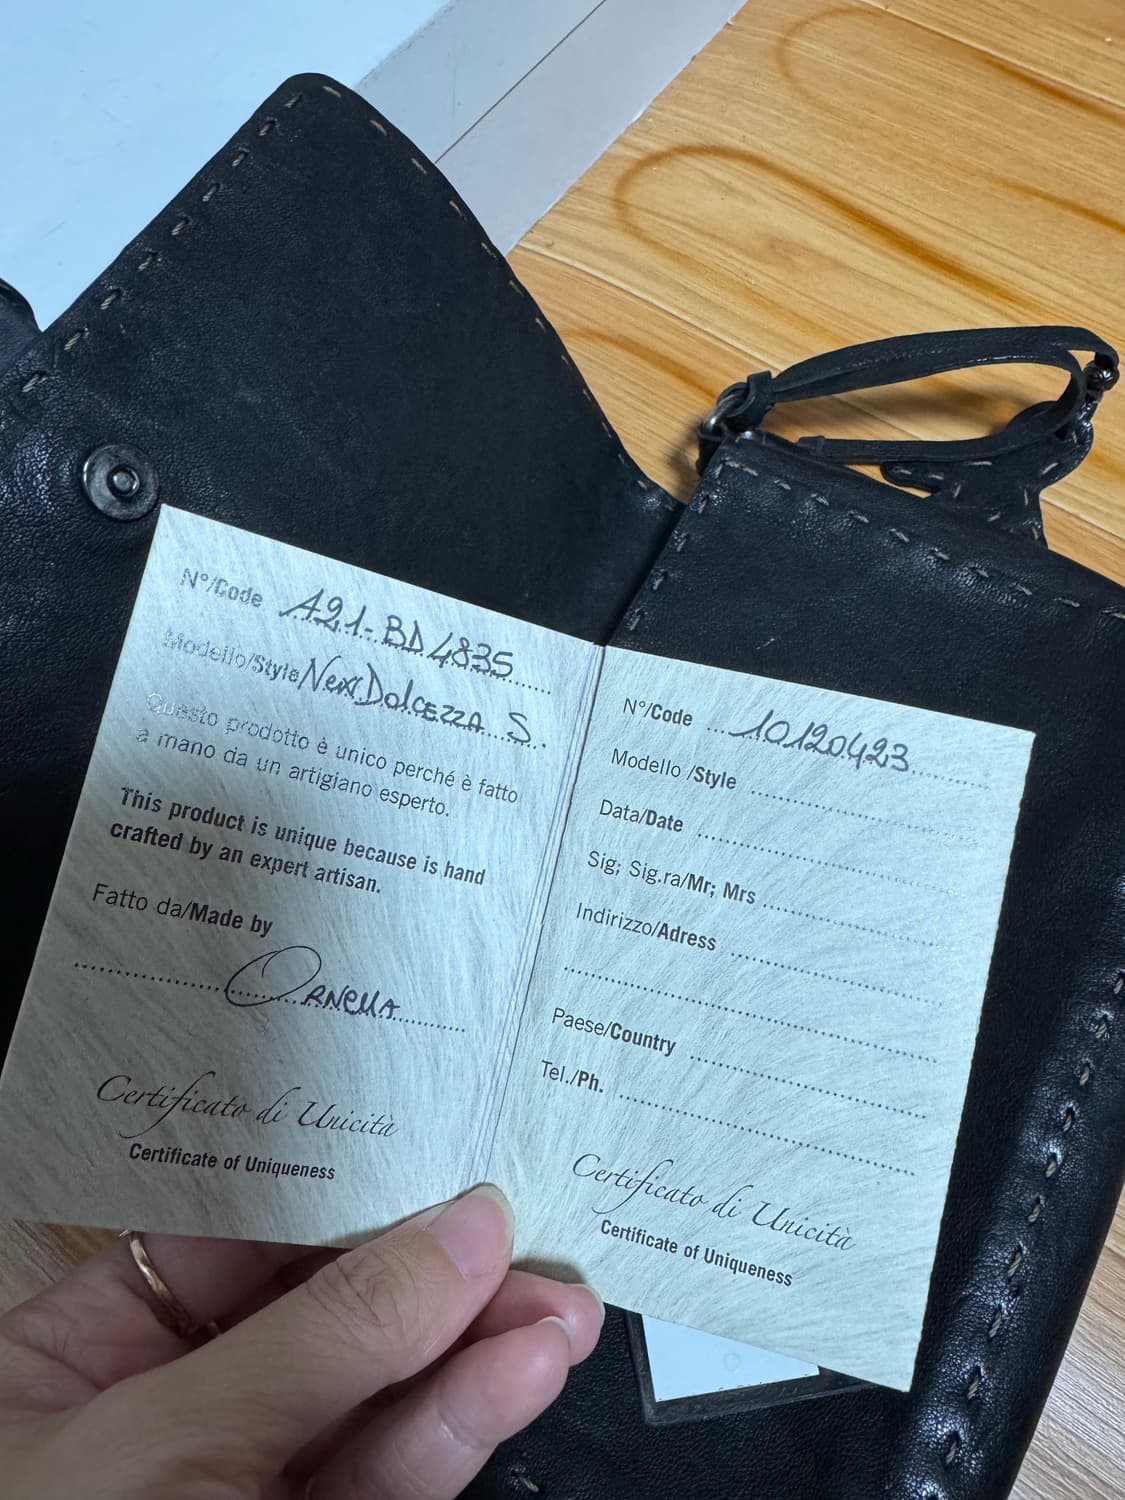 N°/Code A21-BD4835
Modello/Style Next Dolcezza S.
Questo prodotto è unico perché è fatto
a mano da un artigiano esperto.
This product is unique because is hand
crafted by an expert artisan.
Fatto da/Made by
Ornella
Certificato di Unicità
Certificate of Uniqueness
N°/Code 10120423
Modello /Style
Data/Date
Sig; Sig.ra/Mr; Mrs
Indirizzo/Adress
Paese/Country
Tel./Ph.
Certificato di Unicità
Certificate of Uniqueness